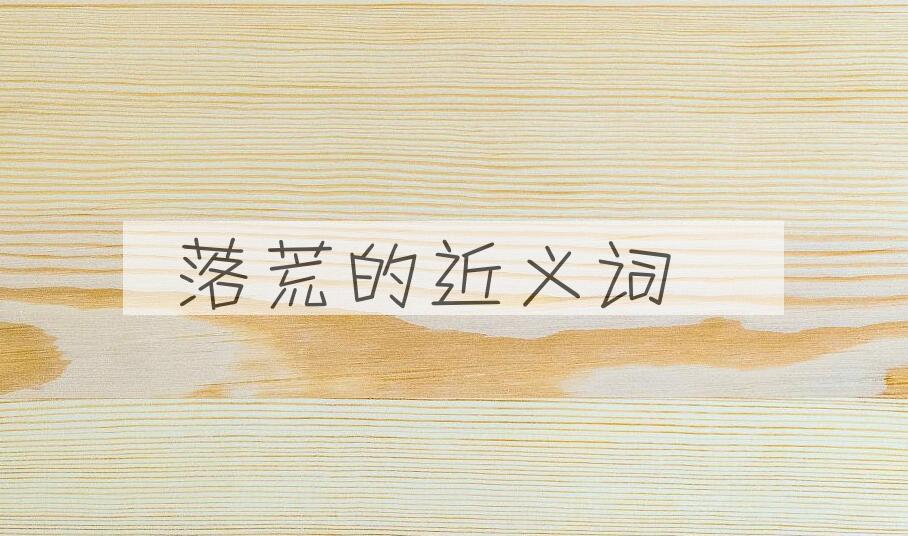 落荒的近义词